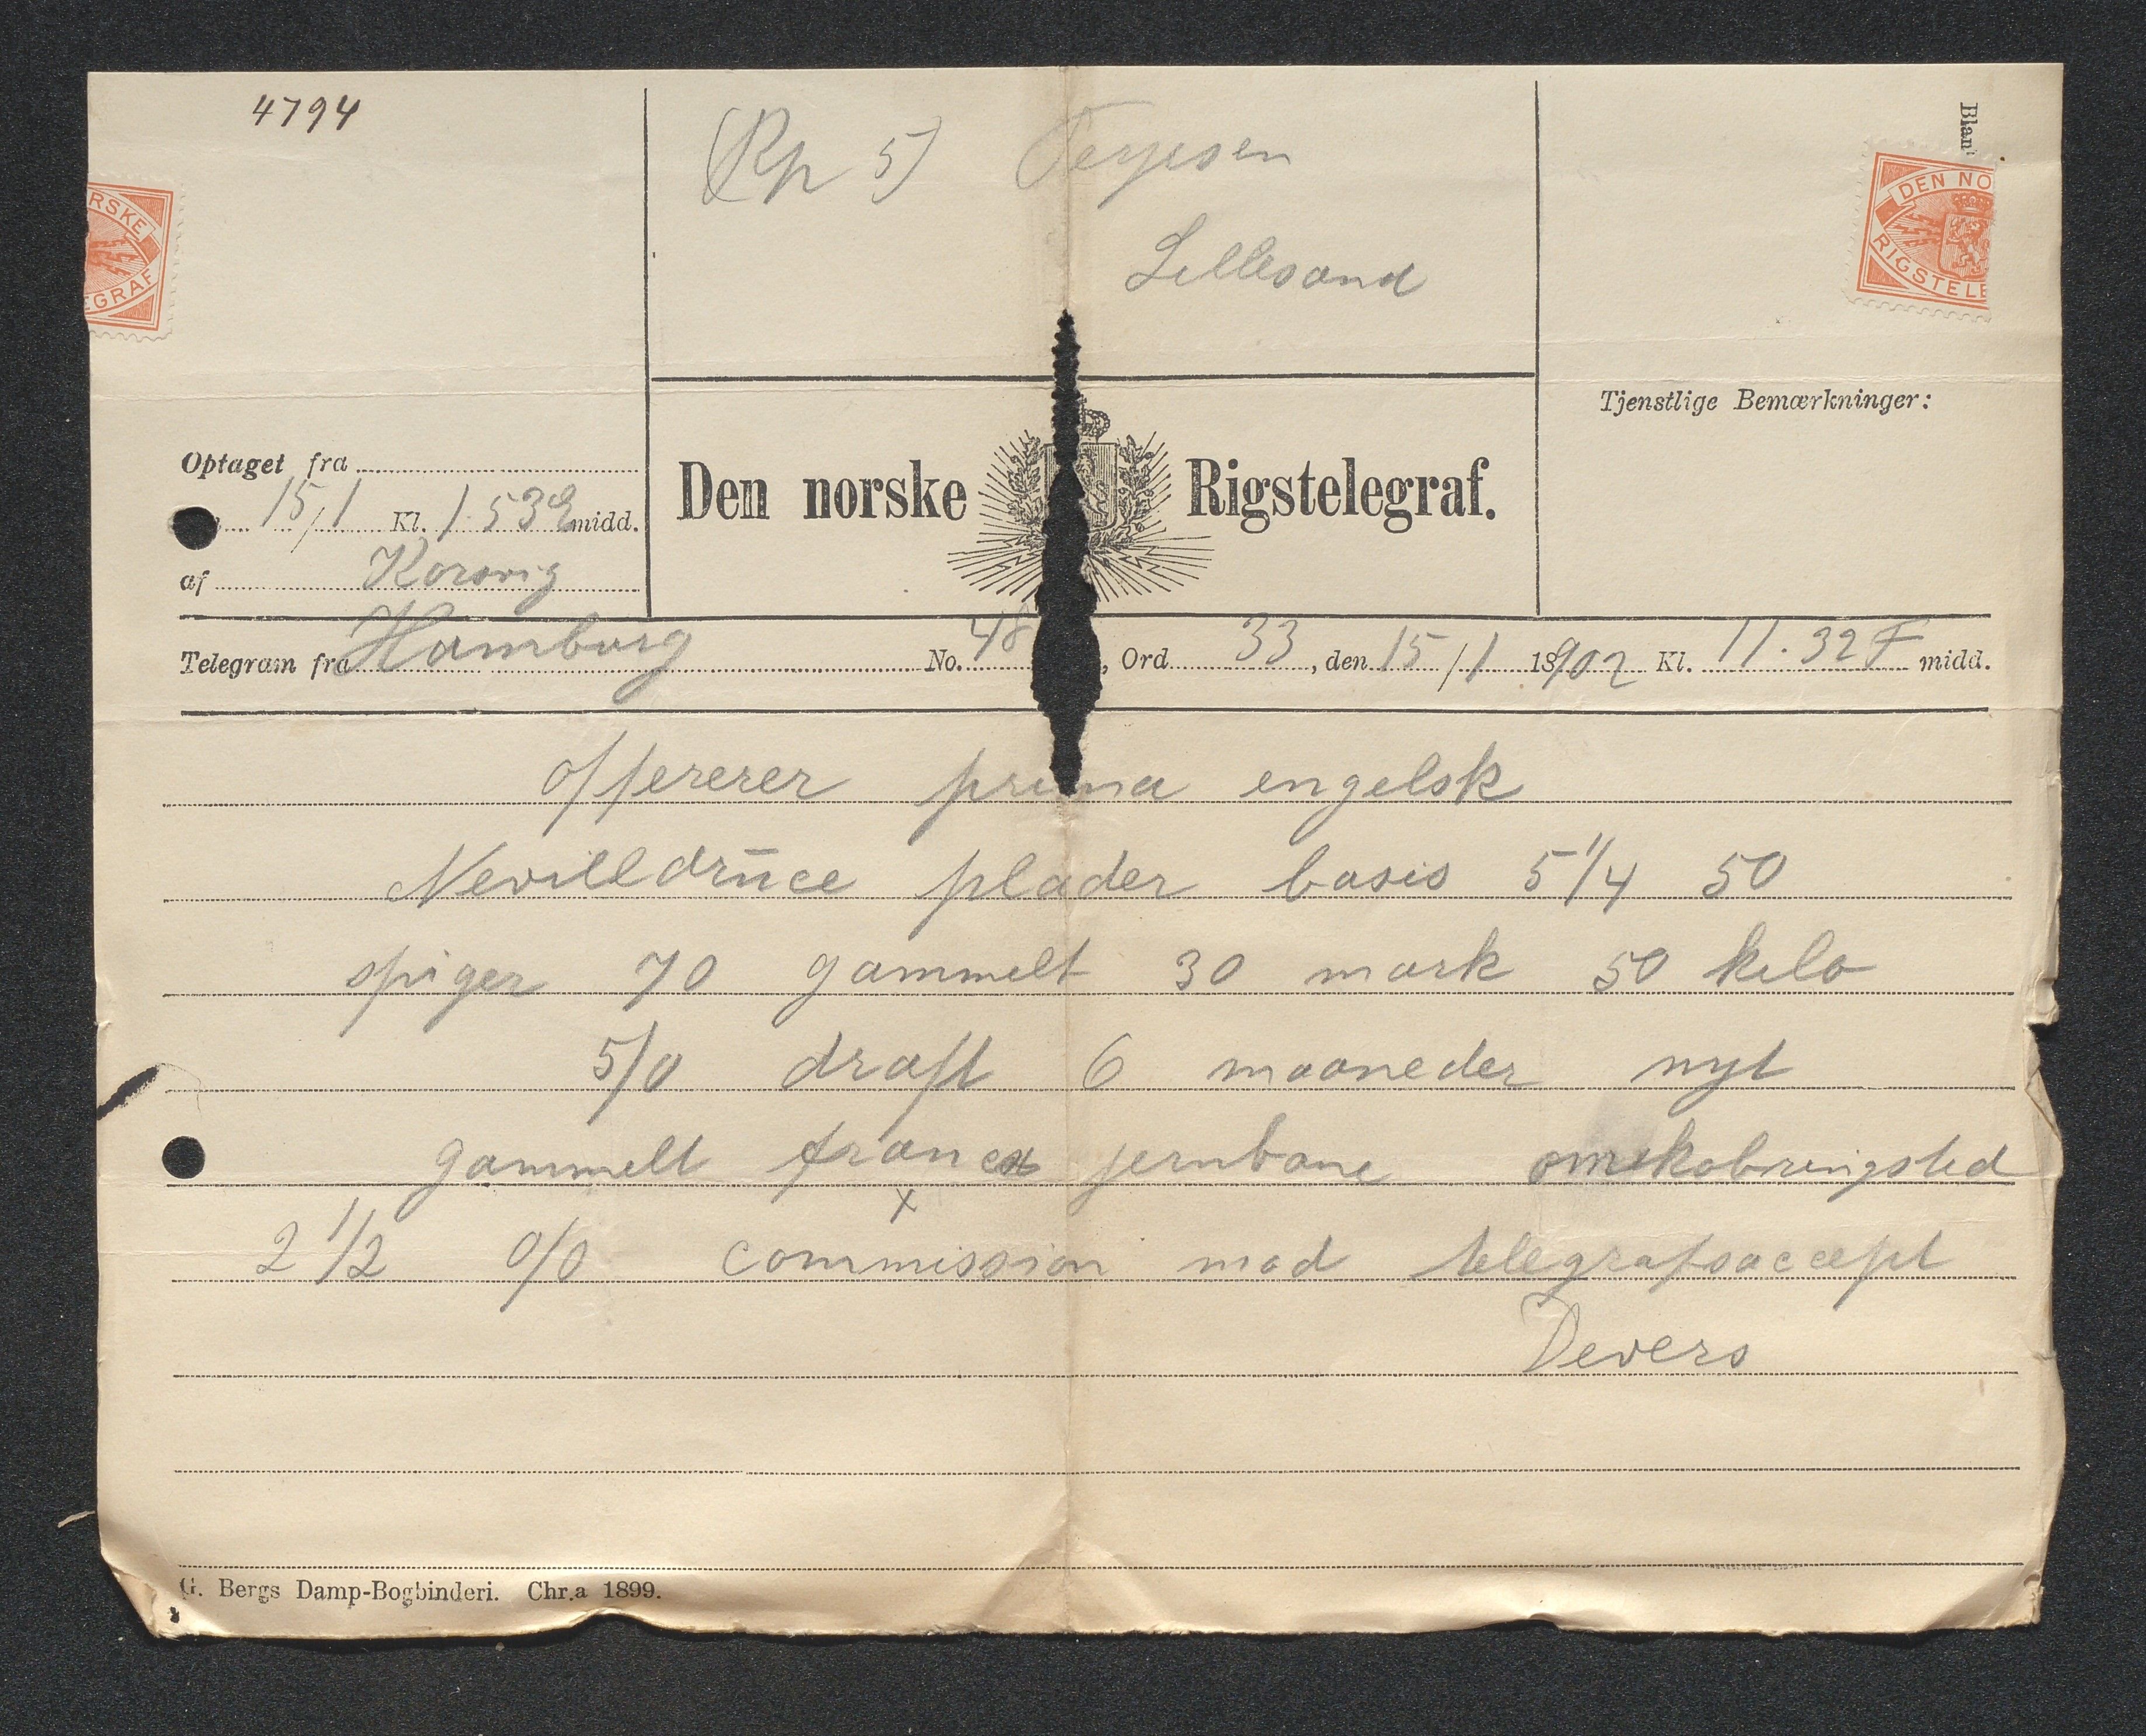 4794
(Rp 5) Terjesen
Lillesand
Blan
RSKE
EGRAF
DEN NO
RIGSTELE
Tjenstlige Bemærkninger:
Optaget fra
15/1 Kl. 1.53 E midd.
af Korsvig
Den norske Rigstelegraf.
Telegram fra Hamburg No. 48 , Ord 33 , den 15/1 18902 Kl. 11.32 F midd.
offererer prima engelsk
Nevilldrüce plader basis 5 1/4 50
spiger 70 gammelt 30 mark 50 kilo
5/0 draft 6 maaneder nyt
gammelt franco jernbane omskobringsted
x
2 1/2 o/o commission mod telegrafsaccept
Devers
G. Bergs Damp-Bogbinderi. Chr.a 1899.